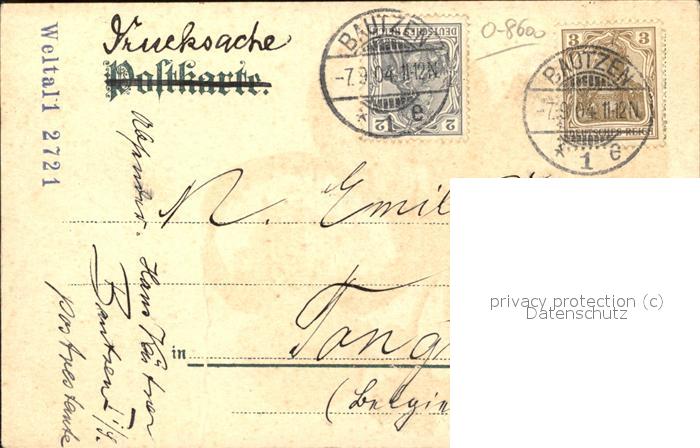 Drucksache
Postkarte.
Weltall 2721
BAUTZEN
-7.9.04.11-12N.
* 1 e
DEUTSCHES REICH
2 2
0-8600
3 3
BAUTZEN
-7.9.04.11-12N.
* 1 e
DEUTSCHES REICH
N. Emil
in Tong
(Belgie
Absender. Hans
Bautzen i/S.
postrestante
privacy protection (c)
Datenschutz